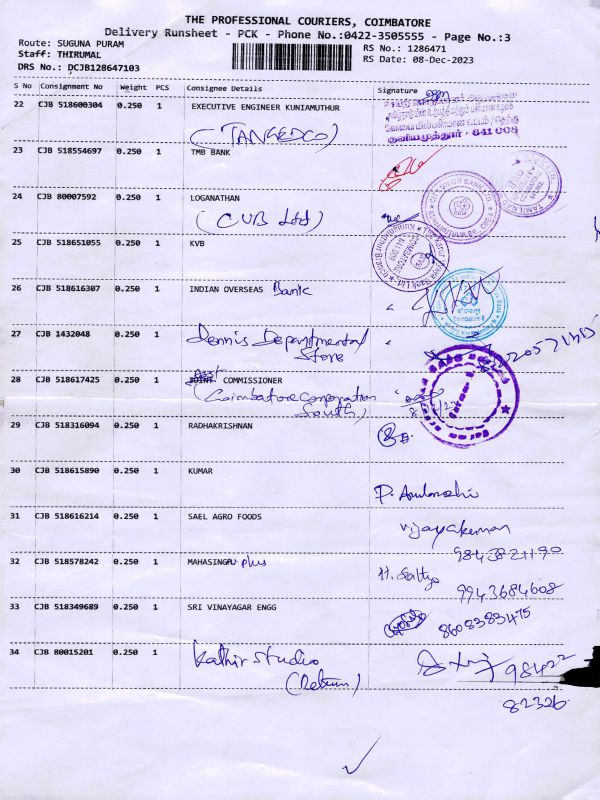 THE PROFESSIONAL COURIERS, COIMBATORE
Delivery Runsheet - PCK - Phone No.:0422-3505555 - Page No.:3
Route: SUGUNA PURAM
RS No.: 1286471
Staff: THIRUMAL
RS Date: 08-Dec-2023
DRS No.: DCJB128647103
S No Consignment No Weight PCS Consignee Details Signature
22 CJB 518600304 0.250 1 EXECUTIVE ENGINEER KUNIAMUTHUR
(TANGEDCO)
குனியமுத்தூர் - 641 008
23 CJB 518554697 0.250 1 TMB BANK
24 CJB 80007592 0.250 1 LOGANATHAN
(CUB Ltd)
25 CJB 518651055 0.250 1 KVB
26 CJB 518616307 0.250 1 INDIAN OVERSEAS Bank
27 CJB 1432048 0.250 1 Dennis Departmental
Store
28 CJB 518617425 0.250 1 COMMISSIONER
(Coimbatore Corporation
South)
29 CJB 518316094 0.250 1 RADHAKRISHNAN
30 CJB 518615890 0.250 1 KUMAR
31 CJB 518616214 0.250 1 SAEL AGRO FOODS
Vijayakumar
9843821190
32 CJB 518578242 0.250 1 MAHASINGH plus
9943684608
33 CJB 518349689 0.250 1 SRI VINAYAGAR ENGG
8608383475
34 CJB 80015201 0.250 1 Kathir Studio
(Return)
98422
82326